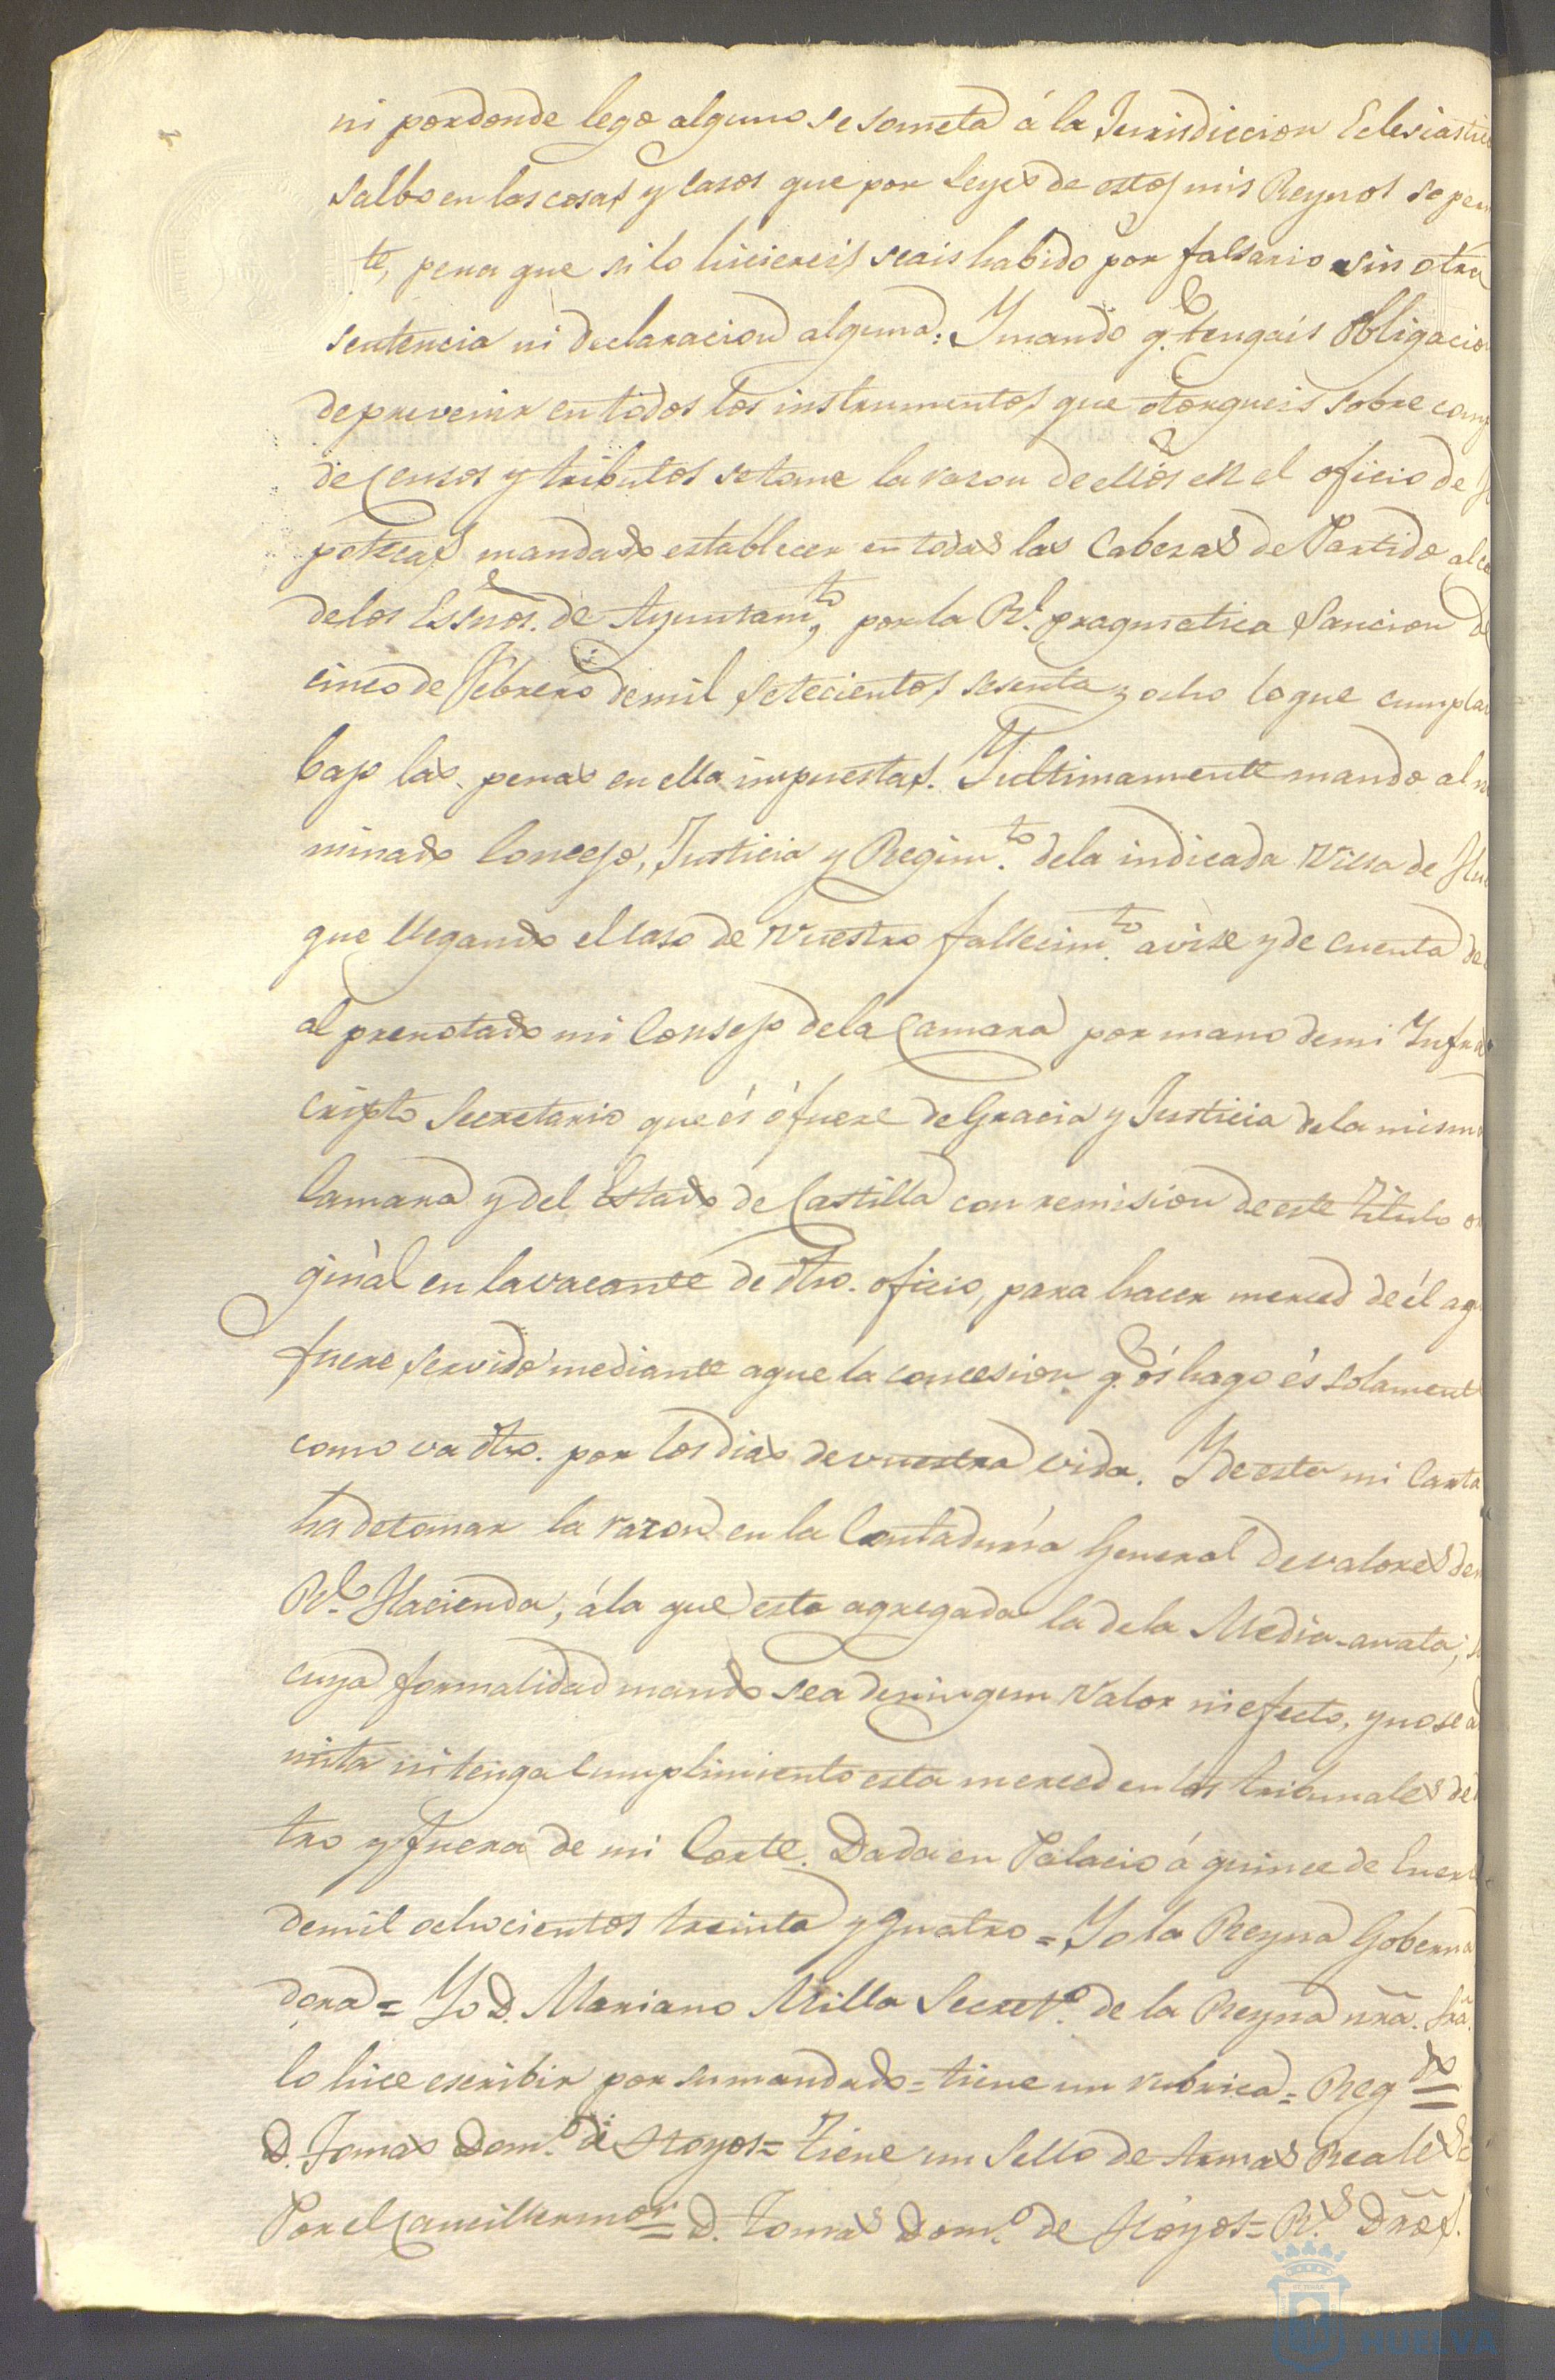 ni por donde lego alguno se someta á la Jurisdiccion Eclesiastic
salbo en las cosas y casos que por Leyes de estos mis Reynos se per
te, pena que si lo hiciereis seais habido por falsario sin otra
sentencia ni declaracion alguna: Y mando q.e tengais obligacion
de prevenir en todos los instrumentos que otorgueis sobre comp
de Censos y tributos se tome la razon de ellos en el oficio de Hi
potecas mandado establecer en todas las Cabezas de Partido al
de los Essnos. de Ayuntam.to, por la R.l pragmatica Sancion de
cinco de Febrero de mil setecientos sesenta y ocho lo que cumpla
bajo las penas en ella impuestas. Y ultimamente mando al no
minado Concejo, Justicia y Regim.to de la indicada Villa de Hue
que llegando el caso de vuestro fallecim.to avise y de cuenta de
al prenotado mi Consejo de la Camara por mano de mi Infras
cripto Secretario que és ó fuere de Gracia y Justicia de la misma
Camara y del Estado de Castilla con remision de este titulo ori
ginàl en la vacante de dho. oficio, para hacer merced de él a qu
fuere servido mediante a que la concesion q.e ós hago és solament
como va dho. por los dias de vuestra vida. Y de esta mi Carta
ha de tomar la razon en la Contaduría General de valores de
R.l Hacienda, á la que esta agregada la de la Media-anata;
cuya formalidad mando sea de ningun valor ni efecto, y no se ad
mita ni tenga cumplimiento esta merced en los tribunales den
tro y fuera de mi Corte. Dada en Palacio á quince de Enero
de mil ochocientos treinta y quatro = Yo la Reyna Goberna
dora = Yo D. Mariano Milla Secret.o de la Reyna nra. Sra.
lo hice escribir por su mandado = tiene un rubrica = Reg.do =
D. Tomas Dom.o de Hoyos = Tiene un Sello de Armas Reales
Por el Cancillermor = D. Tomas Dom.o de Hoyos = R.s Dros.
HUELVA